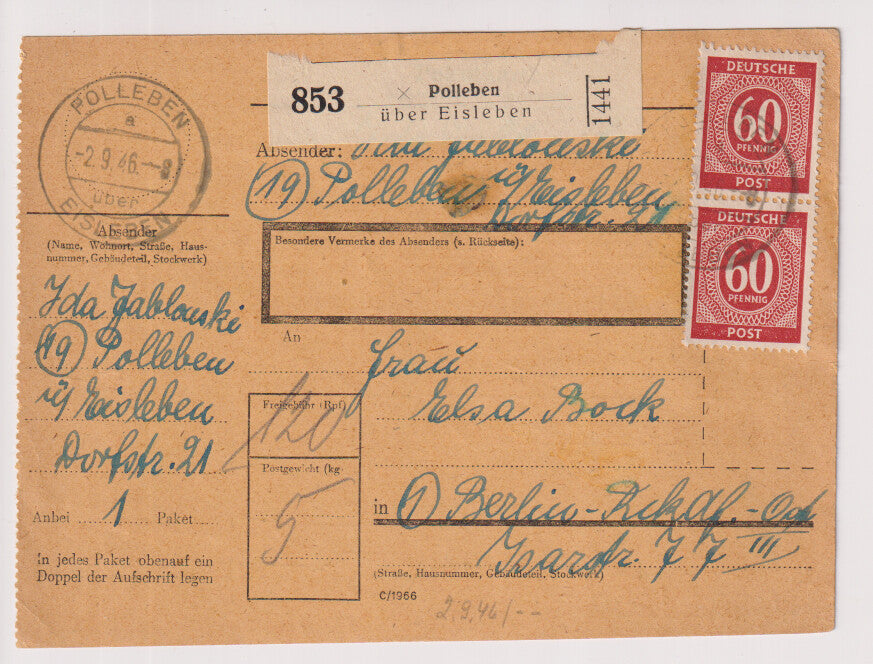 POLLEBEN
a
-2.9.46.-8
über
EISLEBEN
853 Polleben
über Eisleben
1441
DEUTSCHE
60
PFENNIG
POST
DEUTSCHE
60
PFENNIG
POST
Absender: Ida Jablonski
(19) Polleben ü/Eisleben
Dorfstr. 21
Besondere Vermerke des Absenders (s. Rückseite):
Absender
(Name, Wohnort, Straße, Haus-
nummer, Gebäudeteil, Stockwerk)
Ida Jablonski
(19) Polleben
ü/Eisleben
Dorfstr. 21
Anbei 1 Paket
In jedes Paket obenauf ein
Doppel der Aufschrift legen
An Frau
Elsa Bock
Freigebühr (Rpf)
120
Postgewicht (kg
5
in (1) Berlin-
Isarstr. 7 III
(Straße, Hausnummer, Gebäudeteil, Stockwerk)
C/1966
2.9.46/--